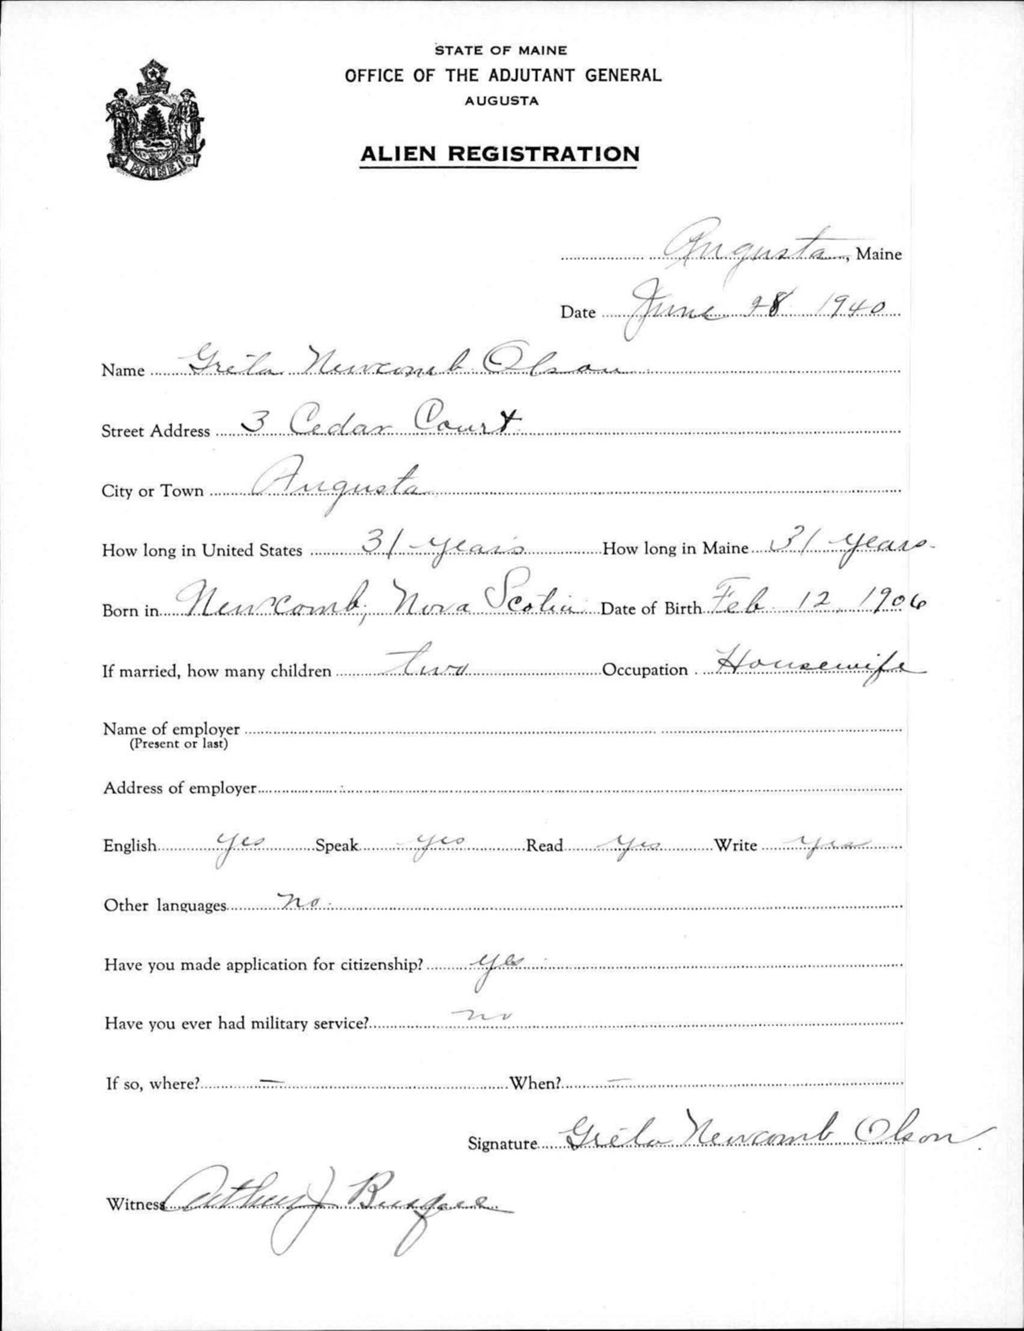 STATE OF MAINE
OFFICE OF THE ADJUTANT GENERAL
AUGUSTA
ALIEN REGISTRATION
MAINE
Augusta, Maine
Date June 28 1940
Name Greta Newcomb Olson
Street Address 3 Cedar Court
City or Town Augusta
How long in United States 31 years How long in Maine 31 years
Born in Newcomb, Nova Scotia Date of Birth Feb 12, 1906
If married, how many children two Occupation Housewife
Name of employer
(Present or last)
Address of employer
English yes Speak yes Read yes Write yes
Other languages no
Have you made application for citizenship? yes
Have you ever had military service? no
If so, where? — When? —
Signature Greta Newcomb Olson
Witness Arthur J